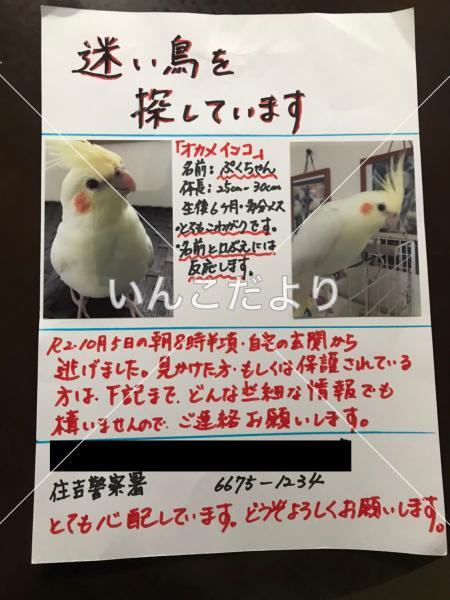 迷い鳥を
探しています
「オカメインコ」
名前：ぷくちゃん
体長：25cm～30cm
生後6ヶ月・多分メス
・とてもこわがりです。
・名前と口ぶえには
反応します。
いんこだより
R2.10月5日の朝8時半頃・自宅の玄関から
逃げました。見かけた方・もしくは保護されている
方は、下記まで、どんな些細な情報でも
構いませんので、ご連絡お願いします。
住吉警察署 6675-1234
とても心配しています。どうぞよろしくお願いします。